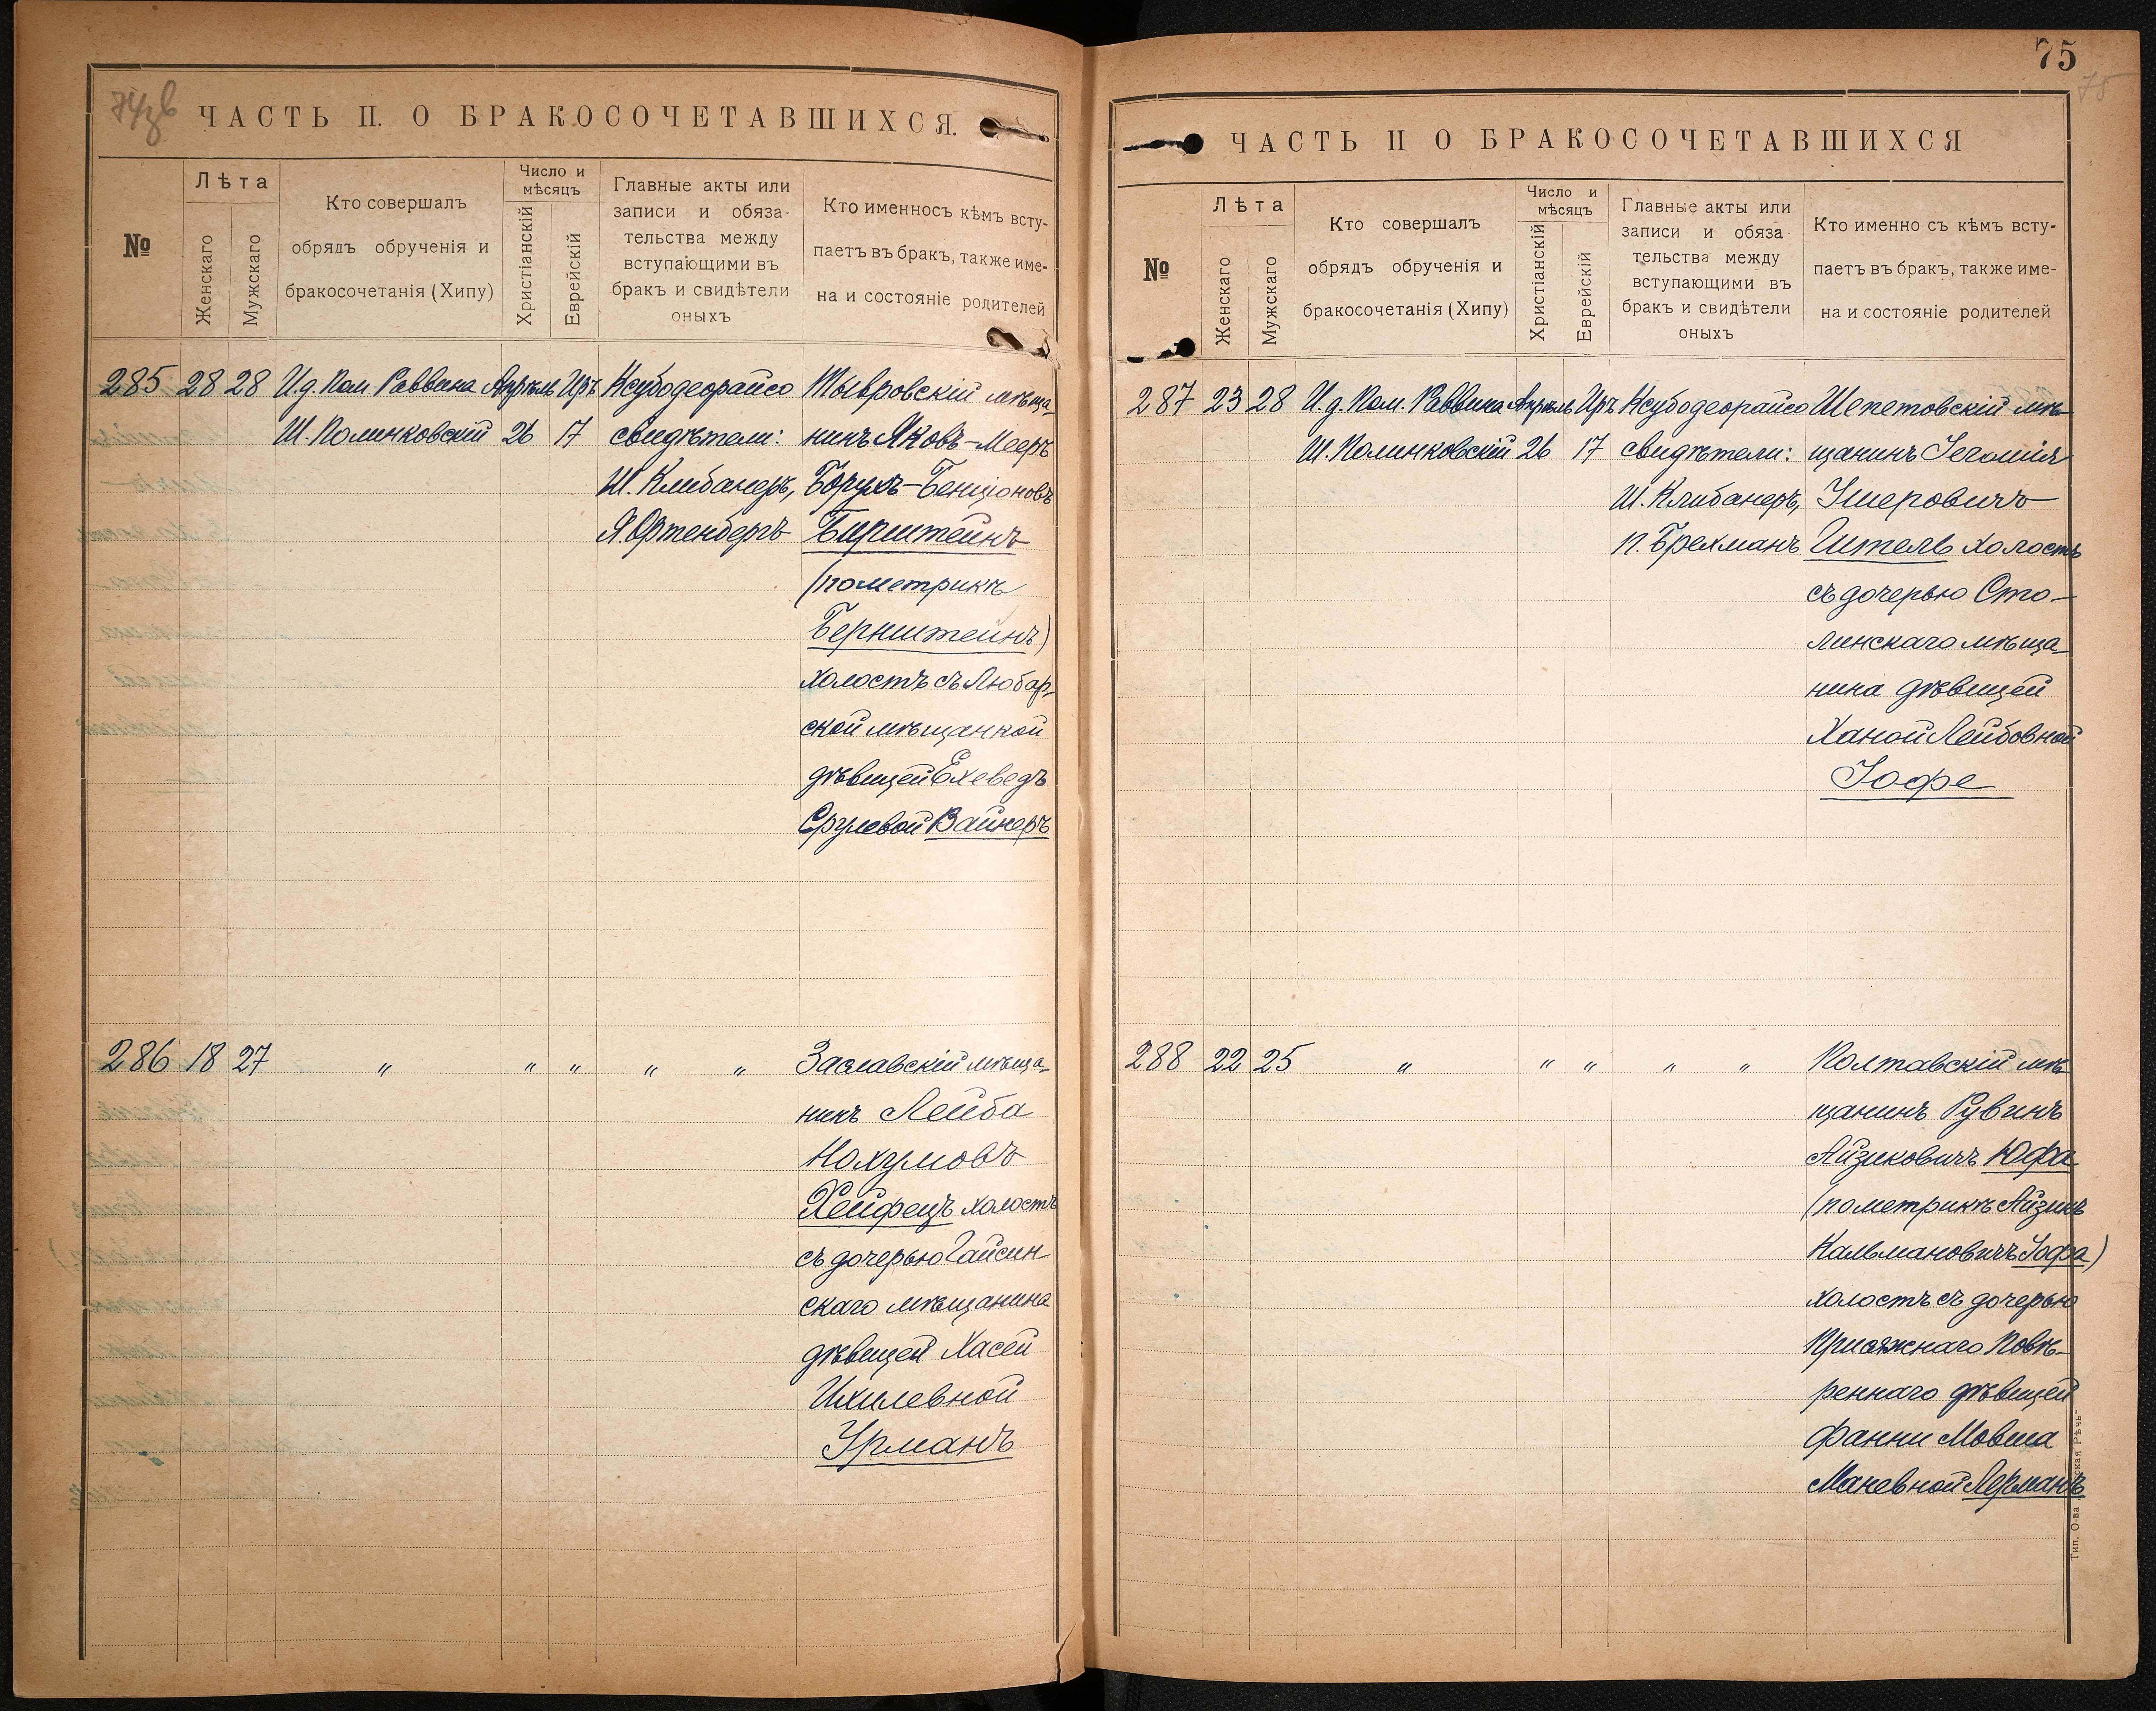 74 зв
ЧАСТЬ II. О БРАКОСОЧЕТАВШИХСЯ.
№
Лѣта
Женскаго
Мужскаго
Кто совершалъ
обрядъ обрученія и
бракосочетанія (Хипу)
Число и
мѣсяцъ
Христіанскій
Еврейскій
Главные акты или
записи и обяза-
тельства между
вступающими въ
бракъ и свидѣтели
оныхъ
Кто именносъ кѣмъ всту-
паетъ въ бракъ, также име-
на и состояніе родителей
285 28 28 И.д. Пом. Раввина Апрѣль Иръ Ксубодеорайсо Тывровскій мѣща-
Ш. Полинковскій 26 17 свидѣтели: нинъ Яковъ-Мееръ
Ш. Клибанеръ, Борухъ-Бенціоновъ
Я. Ортенбергъ Бирштейнъ
(по метрикѣ
Бернштейнъ)
холостъ съ Любар-
ской мѣщанкой
дѣвицей Ехеведъ
Срулевой Вайнеръ
286 18 27 " " " " " Заславскій мѣща-
нинъ Лейба
Нохумовъ
Хейфецъ холостъ
съ дочерью Гайсин-
скаго мѣщанина
дѣвицей Хасей
Ихилевной
Урманъ
75
75
ЧАСТЬ II О БРАКОСОЧЕТАВШИХСЯ
№
Лѣта
Женскаго
Мужскаго
Кто совершалъ
обрядъ обрученія и
бракосочетанія (Хипу)
Число и
мѣсяцъ
Христіанскій
Еврейскій
Главные акты или
записи и обяза-
тельства между
вступающими въ
бракъ и свидѣтели
оныхъ
Кто именно съ кѣмъ всту-
паетъ въ бракъ, также име-
на и состояніе родителей
287 23 28 И.д. Пом. Раввина Апрѣль Иръ Ксубодеорайсо Шепетовскій мѣ-
Ш. Полинковскій 26 17 свидѣтели: щанинъ Іегошія
Ш. Клибанеръ, Ушеровичъ
П. Брехманъ Гитель холостъ
съ дочерью Сто-
линскаго мѣща-
нина дѣвицей
Ханой Лейбовной
Іофе
288 22 25 " " " " " Полтавскій мѣ-
щанинъ Рувинъ
Айзиковичъ Юфа
(по метрикѣ Айзикъ
Кальмановичъ Іофа)
холостъ съ дочерью
Присяжнаго Повѣ-
реннаго дѣвицей
Фанни Мовша
Маневной Лерманъ
Тип. О-ва „ская Рѣчь"